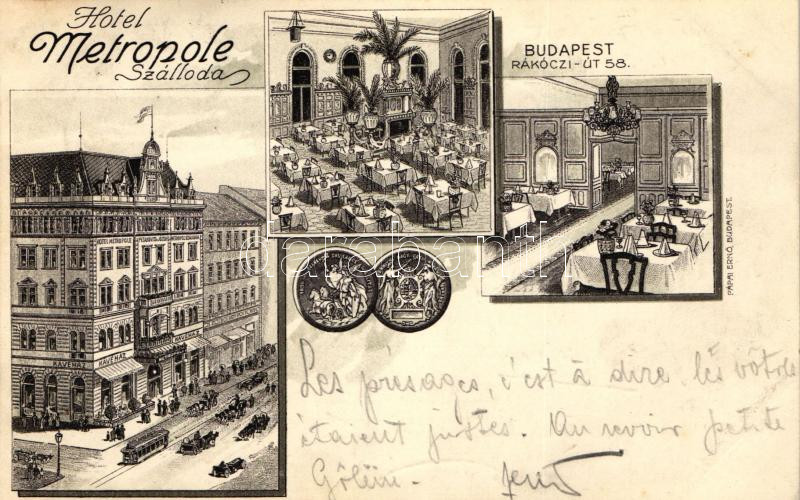 Hotel
Metropole
Szálloda
BUDAPEST
RÁKÓCZI-ÚT 58.
HOTEL METROPOLE
KÁVÉHÁZ
KÁVÉHÁZ
PÁPAI ERNŐ, BUDAPEST.
darabanth
Les présages, c'est à dire les vôtres
étaient justes. Au revoir petite